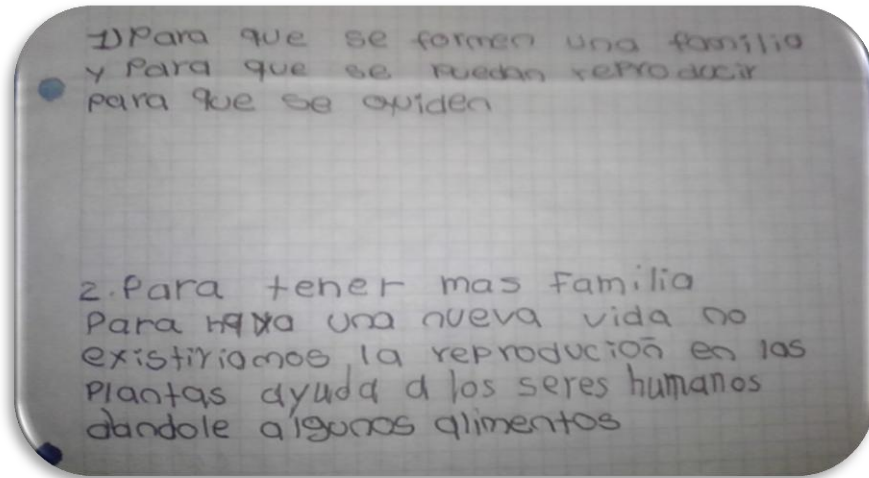 1) Para que se formen una familia
y Para que se puedan reproducir
para que se cuiden
2. Para tener mas familia
Para haya una nueva vida no
existiriamos la reproducion en las
Plantas ayuda a los seres humanos
dandole algunos alimentos